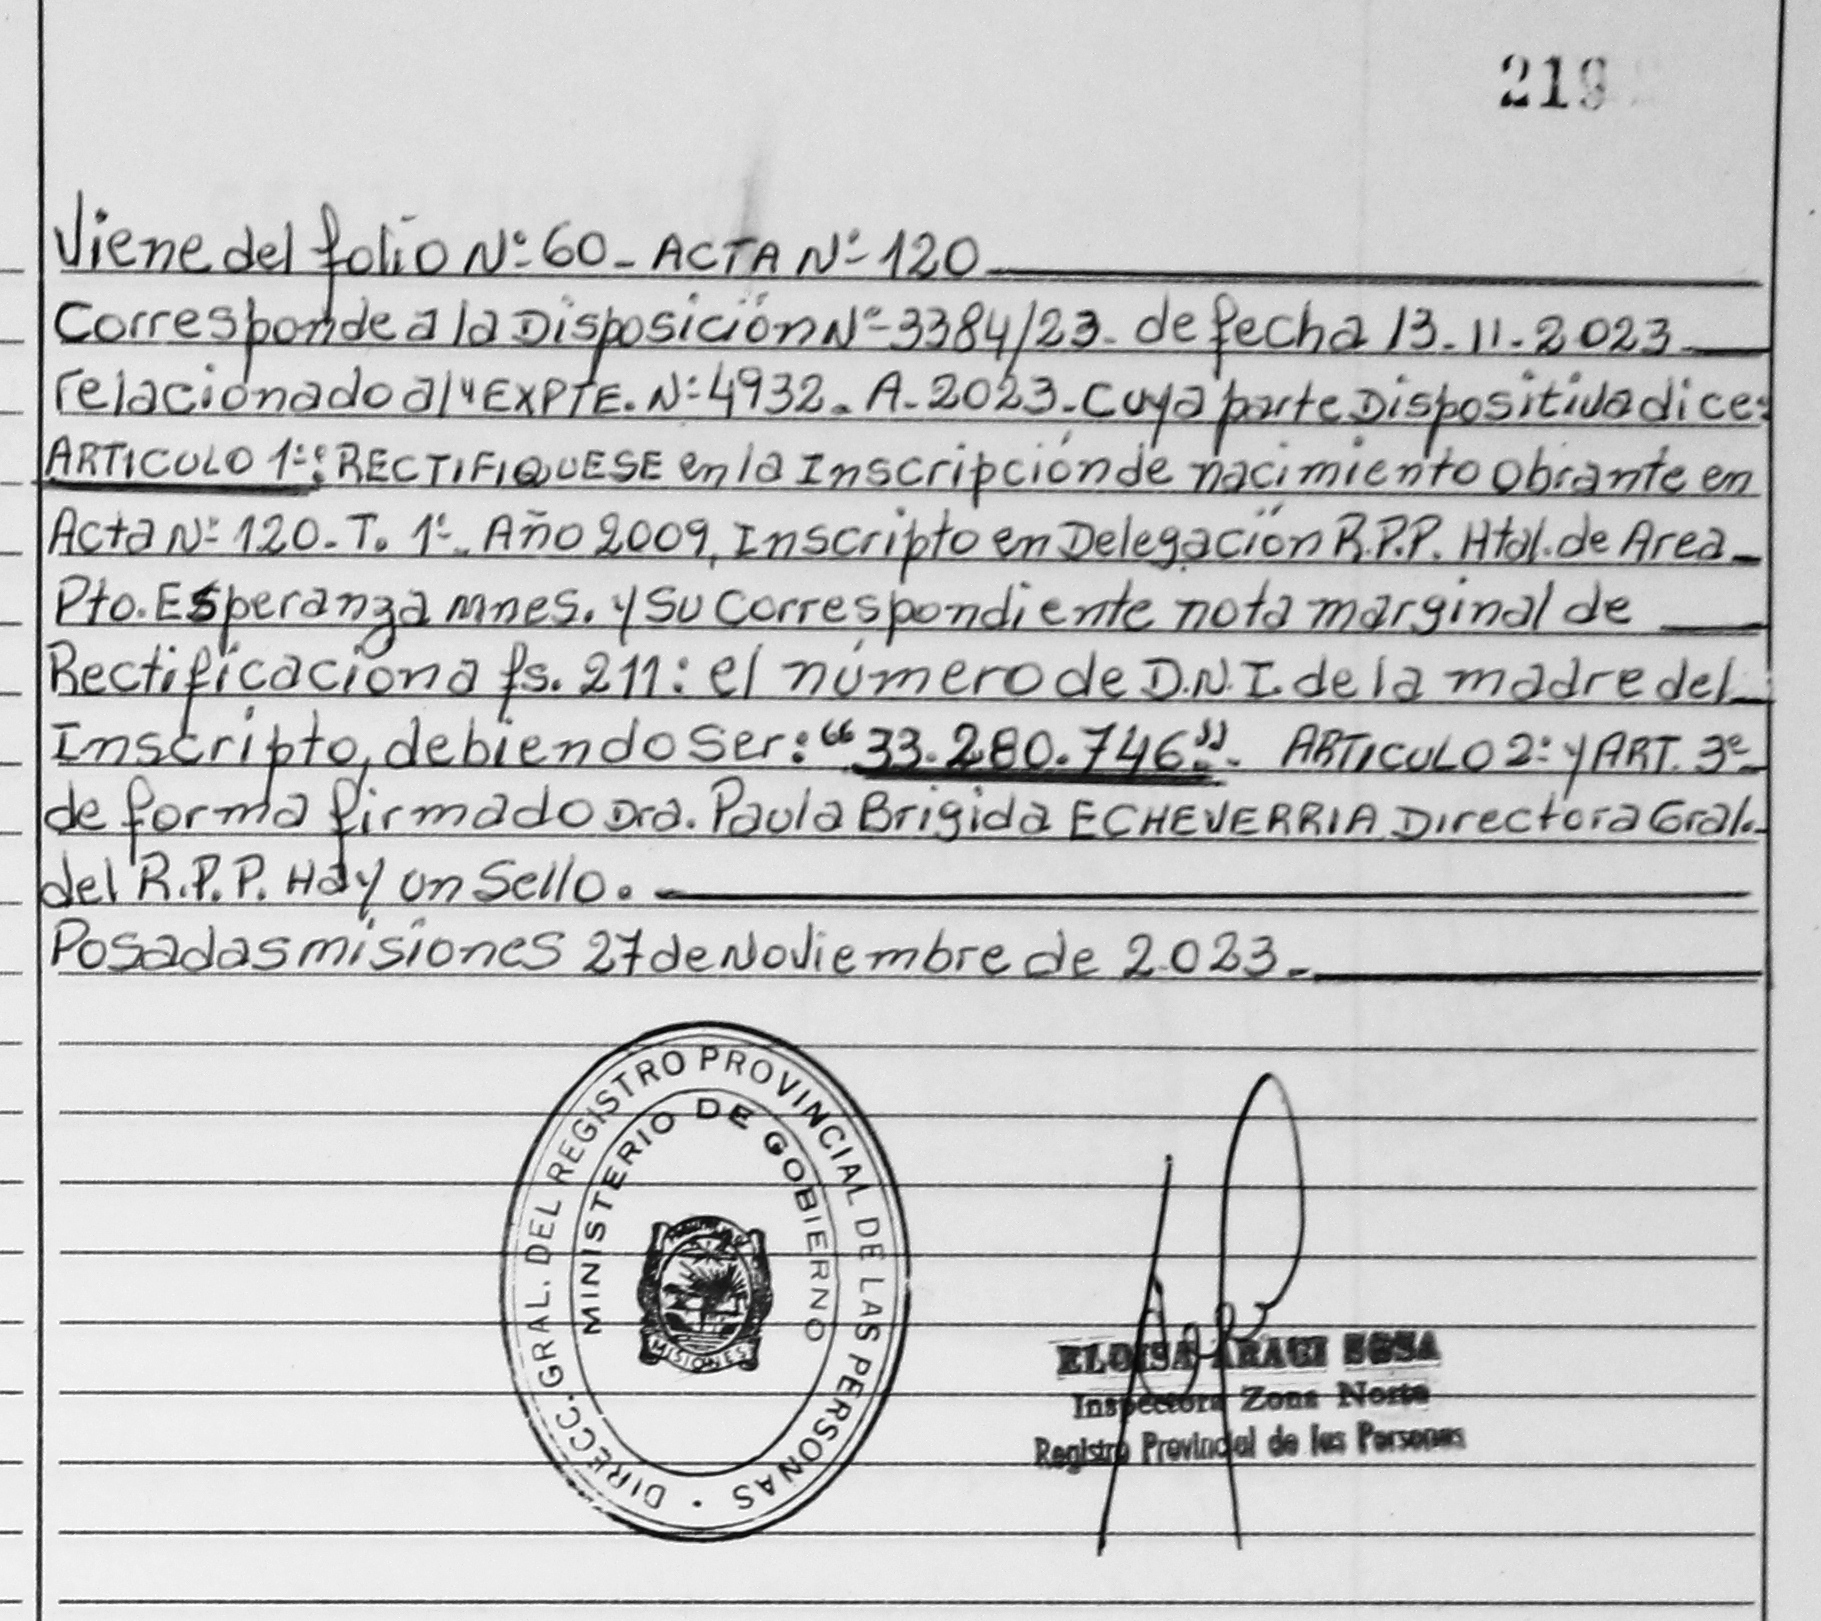 219
Viene del folio Nº 60 - ACTA Nº 120
Corresponde a la Disposición Nº 3384/23. de fecha 13.11.2023
relacionado al "EXPTE. Nº 4932. A. 2023. Cuya parte Dispositiva dice:
ARTICULO 1º: RECTIFIQUESE en la Inscripción de nacimiento Obrante en
Acta Nº 120. T. 1º. Año 2009, Inscripto en Delegación R.P.P. Htal. de Area
Pto. Esperanza Mnes. y su Correspondiente nota marginal de
Rectificacion a fs. 211: el número de D.N.I. de la madre del
Inscripto, debiendo Ser: "33.280.746". ARTICULO 2º y ART. 3º
de forma firmado Dra. Paula Brigida ECHEVERRIA Directora Gral.
del R.P.P. Hay un Sello.
Posadas misiones 27 de Noviembre de 2.023.
DIRECC. GRAL. DEL REGISTRO PROVINCIAL DE LAS PERSONAS
MINISTERIO DE GOBIERNO
MISIONES
ELOISA SOSA
Inspectora Zona Norte
Registro Provincial de las Personas